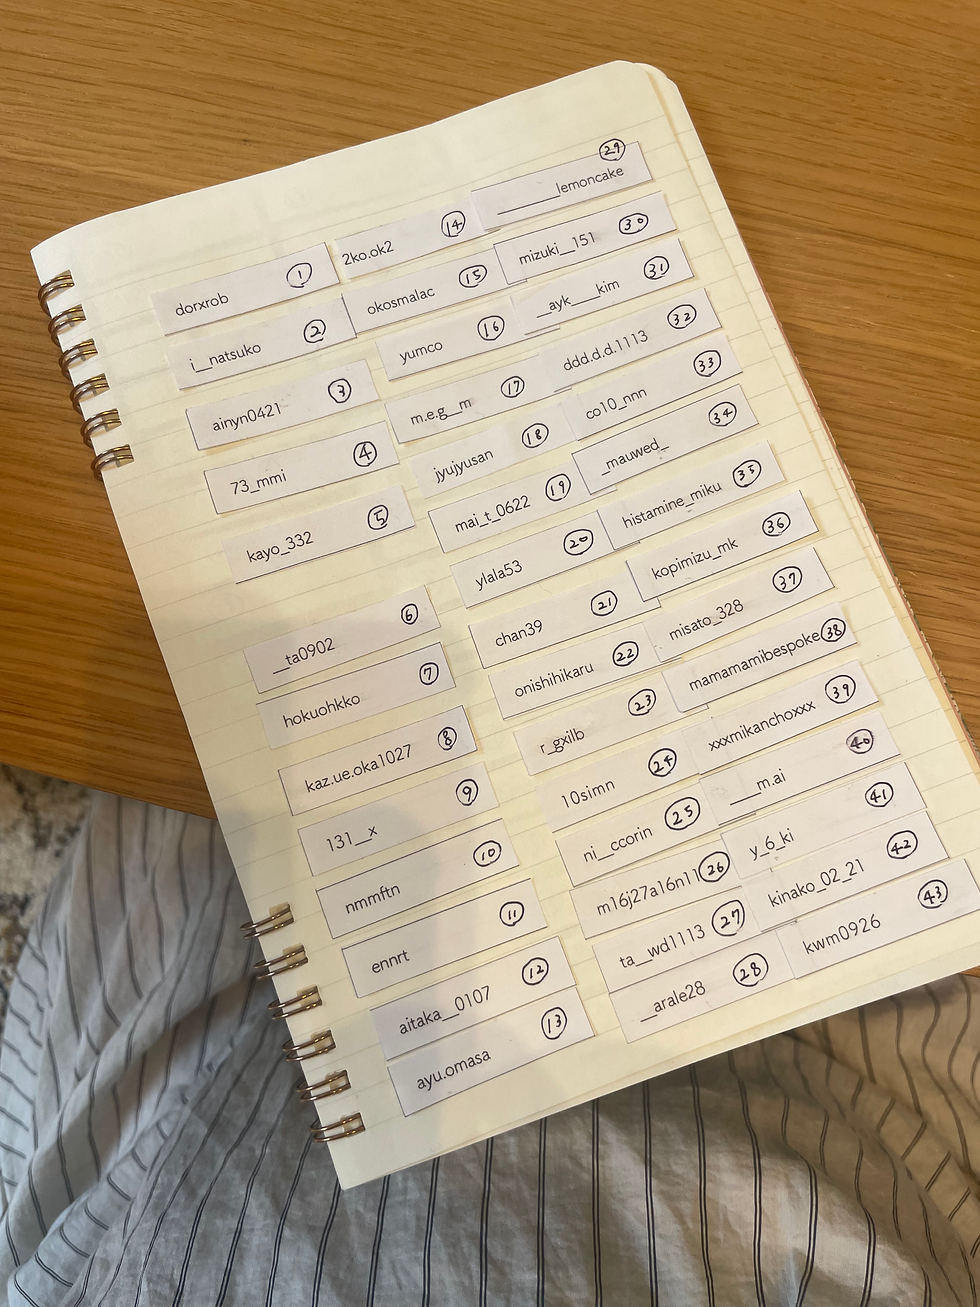 dorxrob ①
i__natsuko ②
ainyn0421 ③
73_mmi ④
kayo_332 ⑤
_ta0902 ⑥
hokuohkko ⑦
kaz.ue.oka1027 ⑧
131__x ⑨
nmmftn ⑩
ennrt ⑪
aitaka__0107 ⑫
ayu.omasa ⑬
2ko.ok2 ⑭
okosmalac ⑮
yumco ⑯
m.e.g__m ⑰
jyujyusan ⑱
mai_t_0622 ⑲
ylala53 ⑳
chan39 ㉑
onishihikaru ㉒
r_gxilb ㉓
10simn ㉔
ni__ccorin ㉕
m16j27a16n11 ㉖
ta__wd1113 ㉗
__arale28 ㉘
______lemoncake ㉙
mizuki__151 ㉚
_ayk___kim ㉛
ddd.d.d.1113 ㉜
co10_nnn ㉝
_mauwed_ ㉞
histamine_miku ㉟
kopimizu_mk ㊱
misato_328 ㊲
mamamamibespoke ㊳
xxxmikanchoxxx ㊴
___m.ai ㊵
y_6_ki ㊶
kinako_02_21 ㊷
kwm0926 ㊸